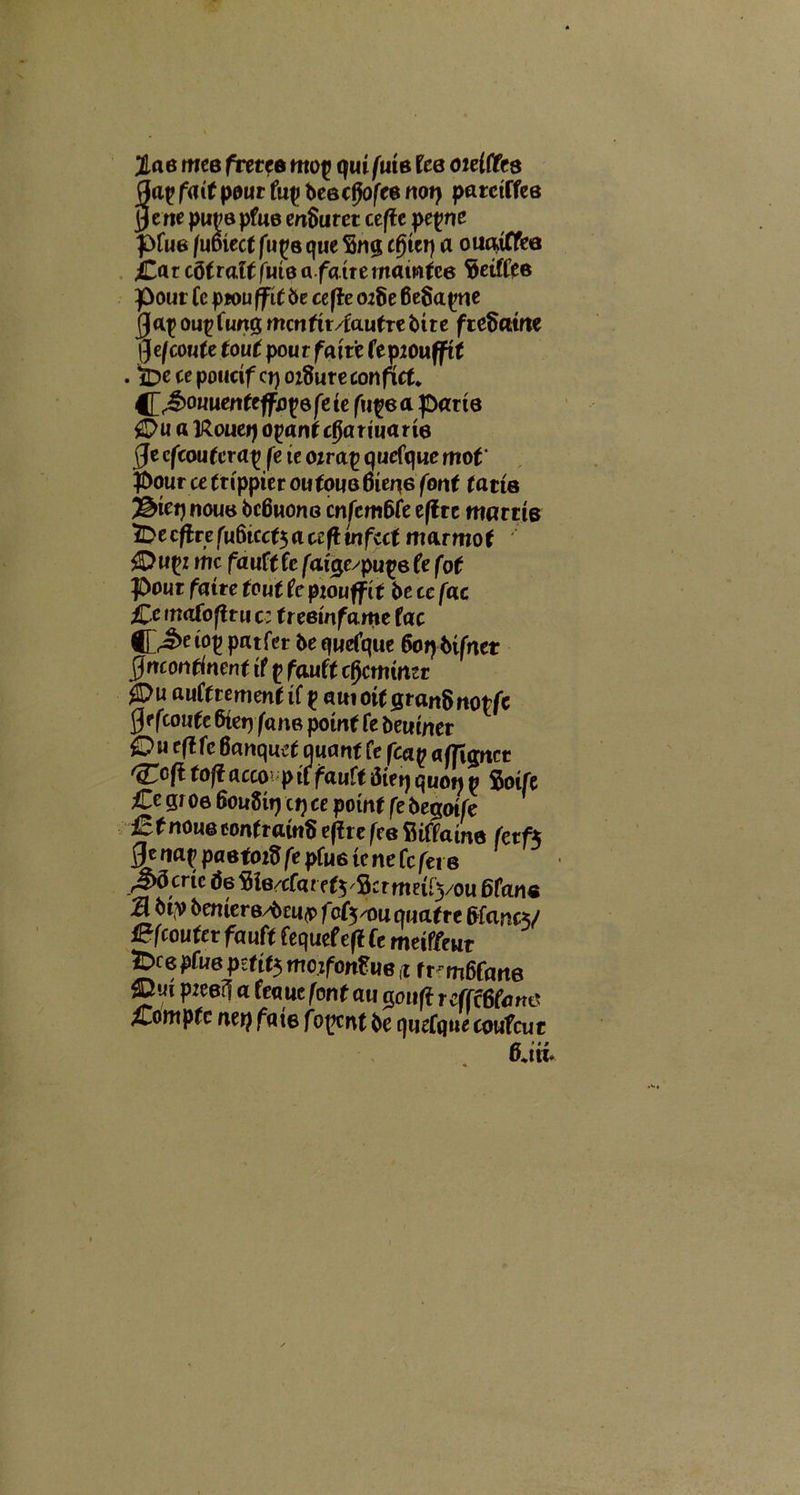 Las mes freres moy qui suis les oreilles
Jay fait pour luy des choses non pareilles
Je ne puys plus endurer ceste peyne
Plus subiect suys que vng chien a ouailles
Car cõtraĩt suis a faire maintes veilles
Pour le prouffit de ceste orde vedayne
Jay ouy lung mentir/lautre dire fredaine
Jescoute tout pour faire le prouffit
. De ce poucif en ordure confict.
¶ Souuenteffoys seie suys a Paris
Ou a Rouen oyant chariuaris
Je escouteray se ie orray quelque mot
Pour ce trippier ou tous biens sont taris
Bien nous debuons ensemble estre marris
De estre subiectz a cest infect marmot
Ouyr me fault le saige/puys le sot
Pour faire tout le prouffit de ce sac
Ce malostru c: tresinfame lac
¶ Se ioy parler de quelque bon disner
Jncontinent il y fault cheminer
Ou aultrement il y auroit grand noyse
Jescoute bien sans point le deuiner
Ou est le banquet quant le scay assigner
Tost tost acco p il fault bien quon y voise
Ce gros boudin en ce point se degoise
Et nous contraind estre ses villains serfz
Je nay pas tord se plus ie ne le sers
Sõ crie des vis/claretz/vermeilz/ou blans
A dix deniers/deux solz/ou quatre blancz/
Escouter fault lequel est le meilleur
Des plus petitz morfondus a tremblans
Qui pres q̃ a leaue sont au goust resẽblans
Compte nen fais soyent de quelque couleur
b.iii.